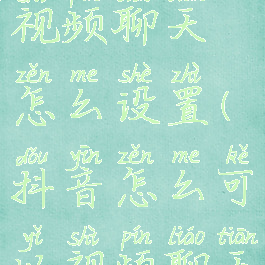 视频聊天
zěn me shè zhì
怎么设置(
dǒu yīn zěn me kě
抖音怎么可
yǐ shì pín liáo tiān
以视频聊天